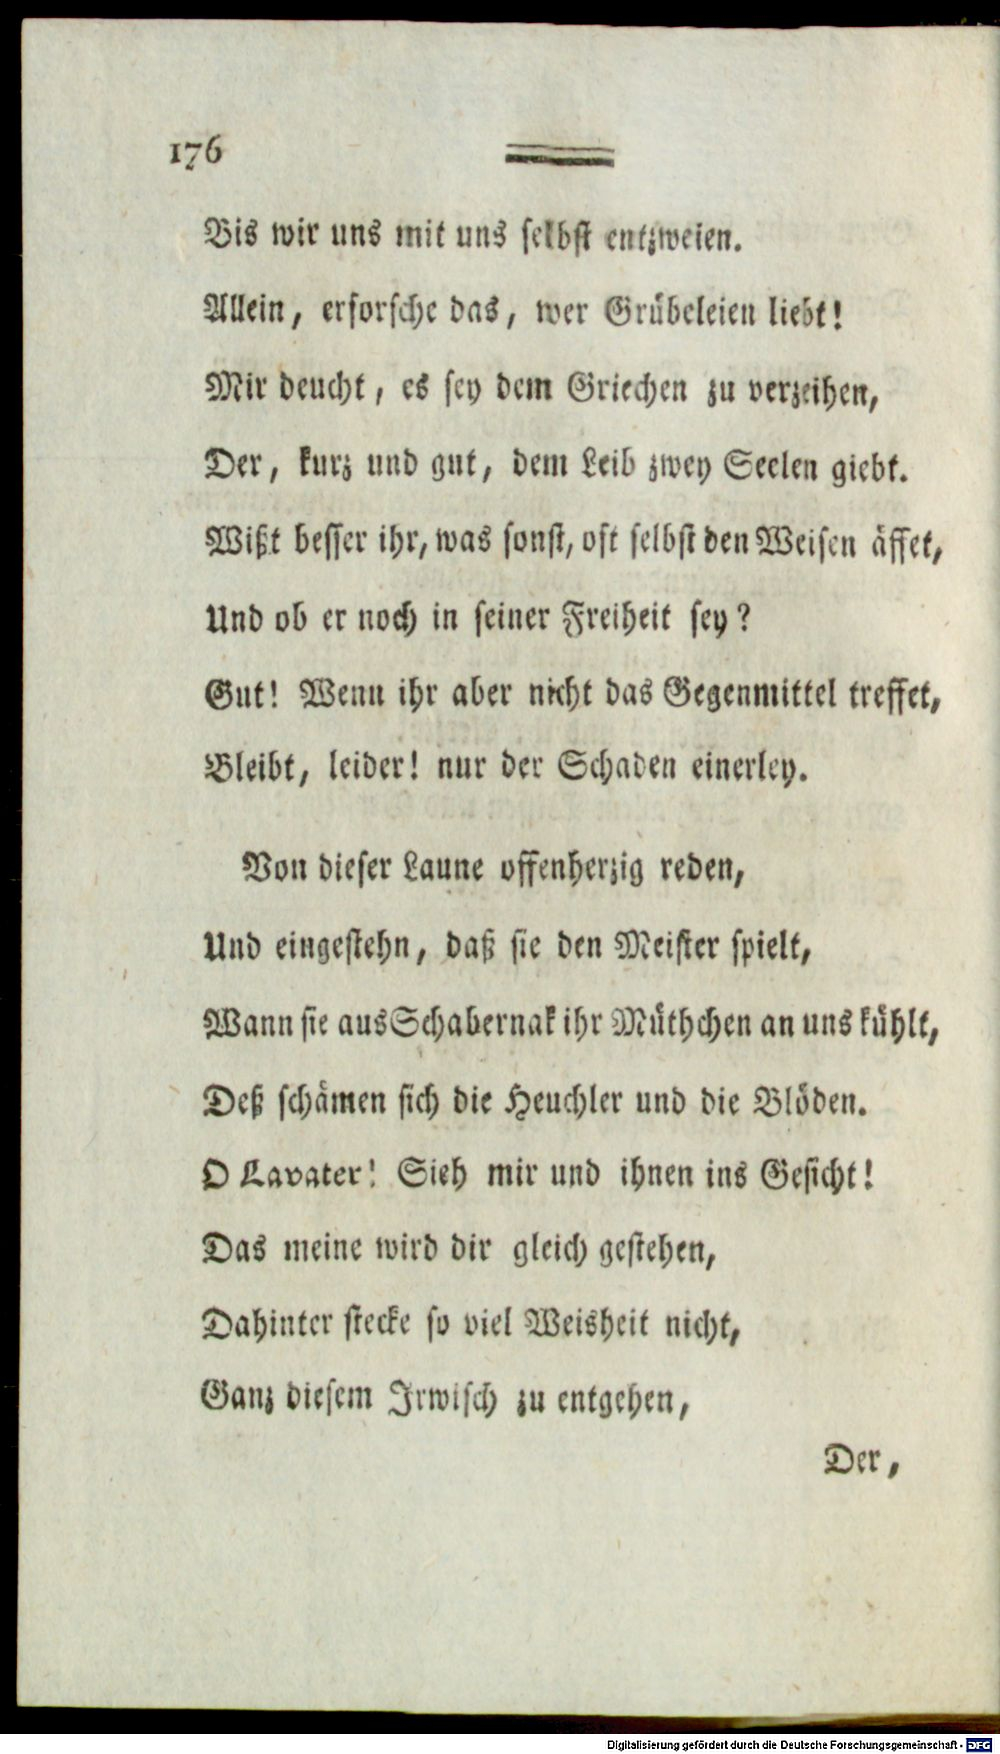 176
Bis wir uns mit uns selbst entzweien.
Allein, erforsche das, wer Grübeleien liebt!
Mir deucht, es sey dem Griechen zu verzeihen,
Der, kurz und gut, dem Leib zwey Seelen giebt.
Wißt besser ihr, was sonst, oft selbst den Weisen äffet,
Und ob er noch in seiner Freiheit sey?
Gut! Wenn ihr aber nicht das Gegenmittel treffet,
Bleibt, leider! nur der Schaden einerley.
Von dieser Laune offenherzig reden,
Und eingestehn, daß sie den Meister spielt,
Wann sie aus Schabernak ihr Müthchen an uns kühlt,
Deß schämen sich die Heuchler und die Blöden.
O Lavater! Sieh mir und ihnen ins Gesicht!
Das meine wird dir gleich gestehen,
Dahinter stecke so viel Weisheit nicht,
Ganz diesem Irwisch zu entgehen,
Der,
Digitalisierung gefördert durch die Deutsche Forschungsgemeinschaft - DFG